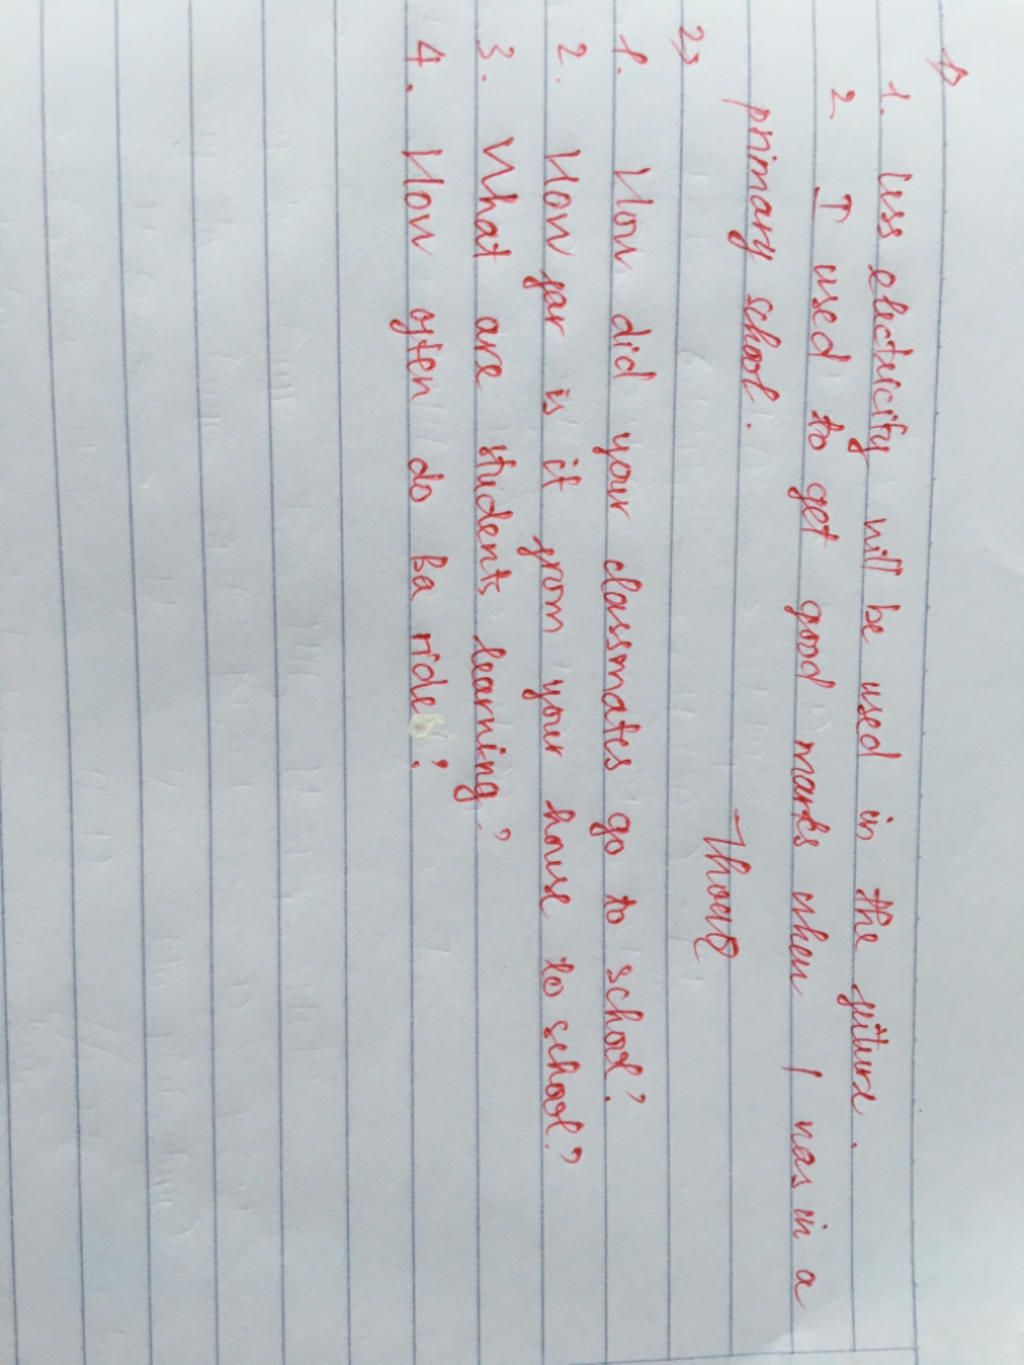 1>
1. Less electricity will be used in the future.
2 I used to get good marks when I was in a
primary school.
2>
1. How did your classmates go to school?
2. How far is it from your house to school?
3. What are students learning?
4. How often do Ba ride?